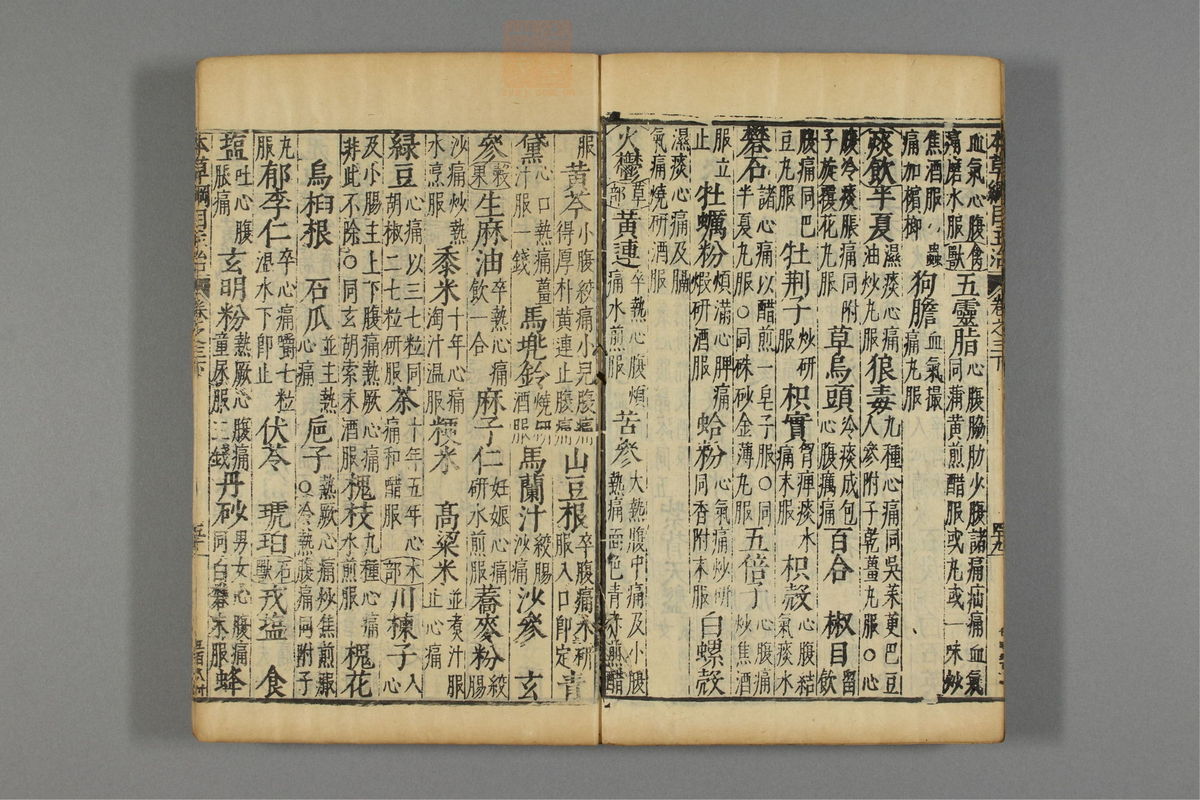 本草綱目主治 卷之三下
血氣心腹食滯磨水服獸五靈脂心腹脇肋少腹諸痛疝痛血氣同蒲黄煎醋服或丸或一味炒
焦酒服○蟲痛加檳榔狗膽血氣撮痛丸服
痰飲半夏濕痰心痛油炒丸服狼毒九種心痛同吳茱萸巴豆人參附子乾薑丸服○心
腹冷痰脹痛同附子旋覆花丸服草烏頭冷痰成包心腹㽲痛百合椒目留飲
腹痛同巴豆丸服牡荆子炒研服枳實胷痺痰水痛末服枳殼心腹結氣痰水
礬石諸心痛以醋煎一皂子服○同半夏丸服○同硃砂金薄丸服五倍子心腹痛炒焦酒
服立止牡蠣粉煩滿心脾痛煆研酒服蛤粉心氣痛炒研同香附末服白螺殼
濕痰心痛及膈氣痛燒研酒服
火鬱草部黃連卒熱心腹煩痛水煎服苦參大熱腹中痛及小腹熱痛面色青赤煎醋
服黃芩小腹絞痛小兒腹痛得厚朴黃連止腹痛山豆根卒腹痛水研服入口即定青
黛心口熱痛薑汁服一錢馬兜鈴燒研酒服馬蘭汁絞腸沙痛沙參玄
參穀菓生麻油卒熱心痛飲一合麻子仁妊娠心痛研水煎服蕎麥粉絞腸
沙痛炒熱水烹服黍米十年心痛淘汁温服粳米高粱米並煮汁服止心痛
緑豆心痛以三七粒同胡椒二七粒研服茶十年五年心痛和醋服木部川楝子入心
及小腸主上下腹痛熱厥心痛非此不除○同玄胡索末酒服槐枝九種心痛水煎服槐花
烏桕根石瓜並主熱心痛巵子熱厥心痛炒焦煎服○冷熱腹痛同附子
丸服郁李仁卒心痛嚼七粒温水下即止伏苓琥珀石獸戎塩食
塩吐心腹脹痛玄明粉熱厥心腹痛童尿服三錢丹砂男女心腹痛同白礬末服蜂
本草綱目主治 卷之三下